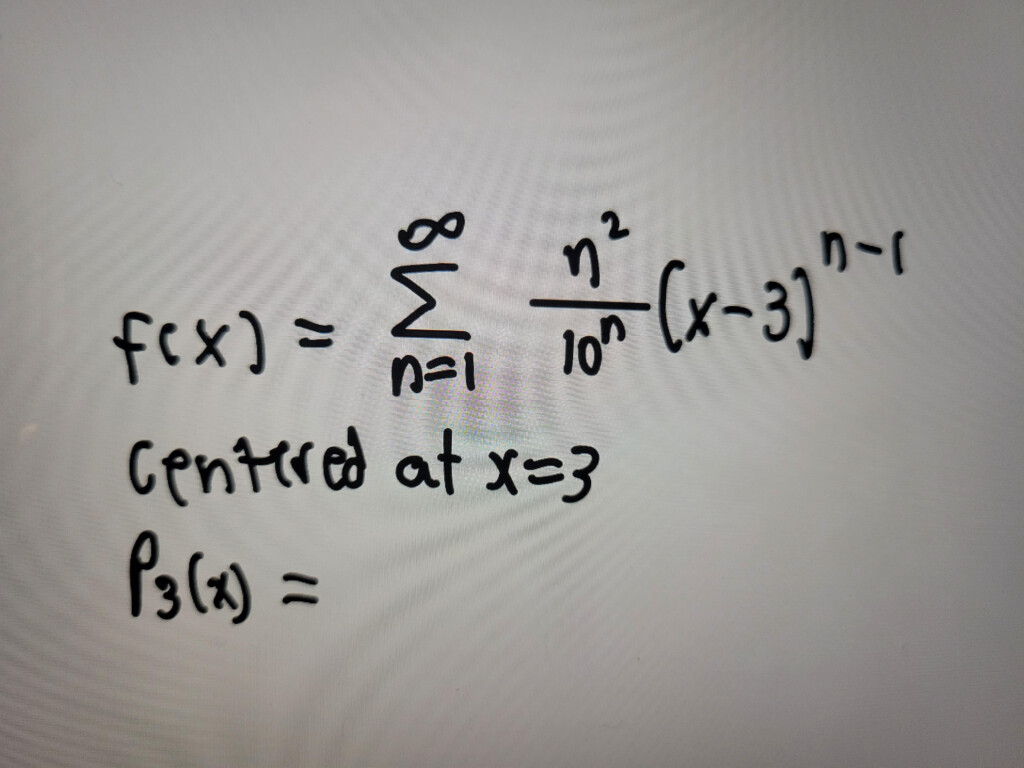 f(x) = ∞∑n=1 n²/10ⁿ (x-3)ⁿ⁻¹
centered at x=3
P₃(x) =